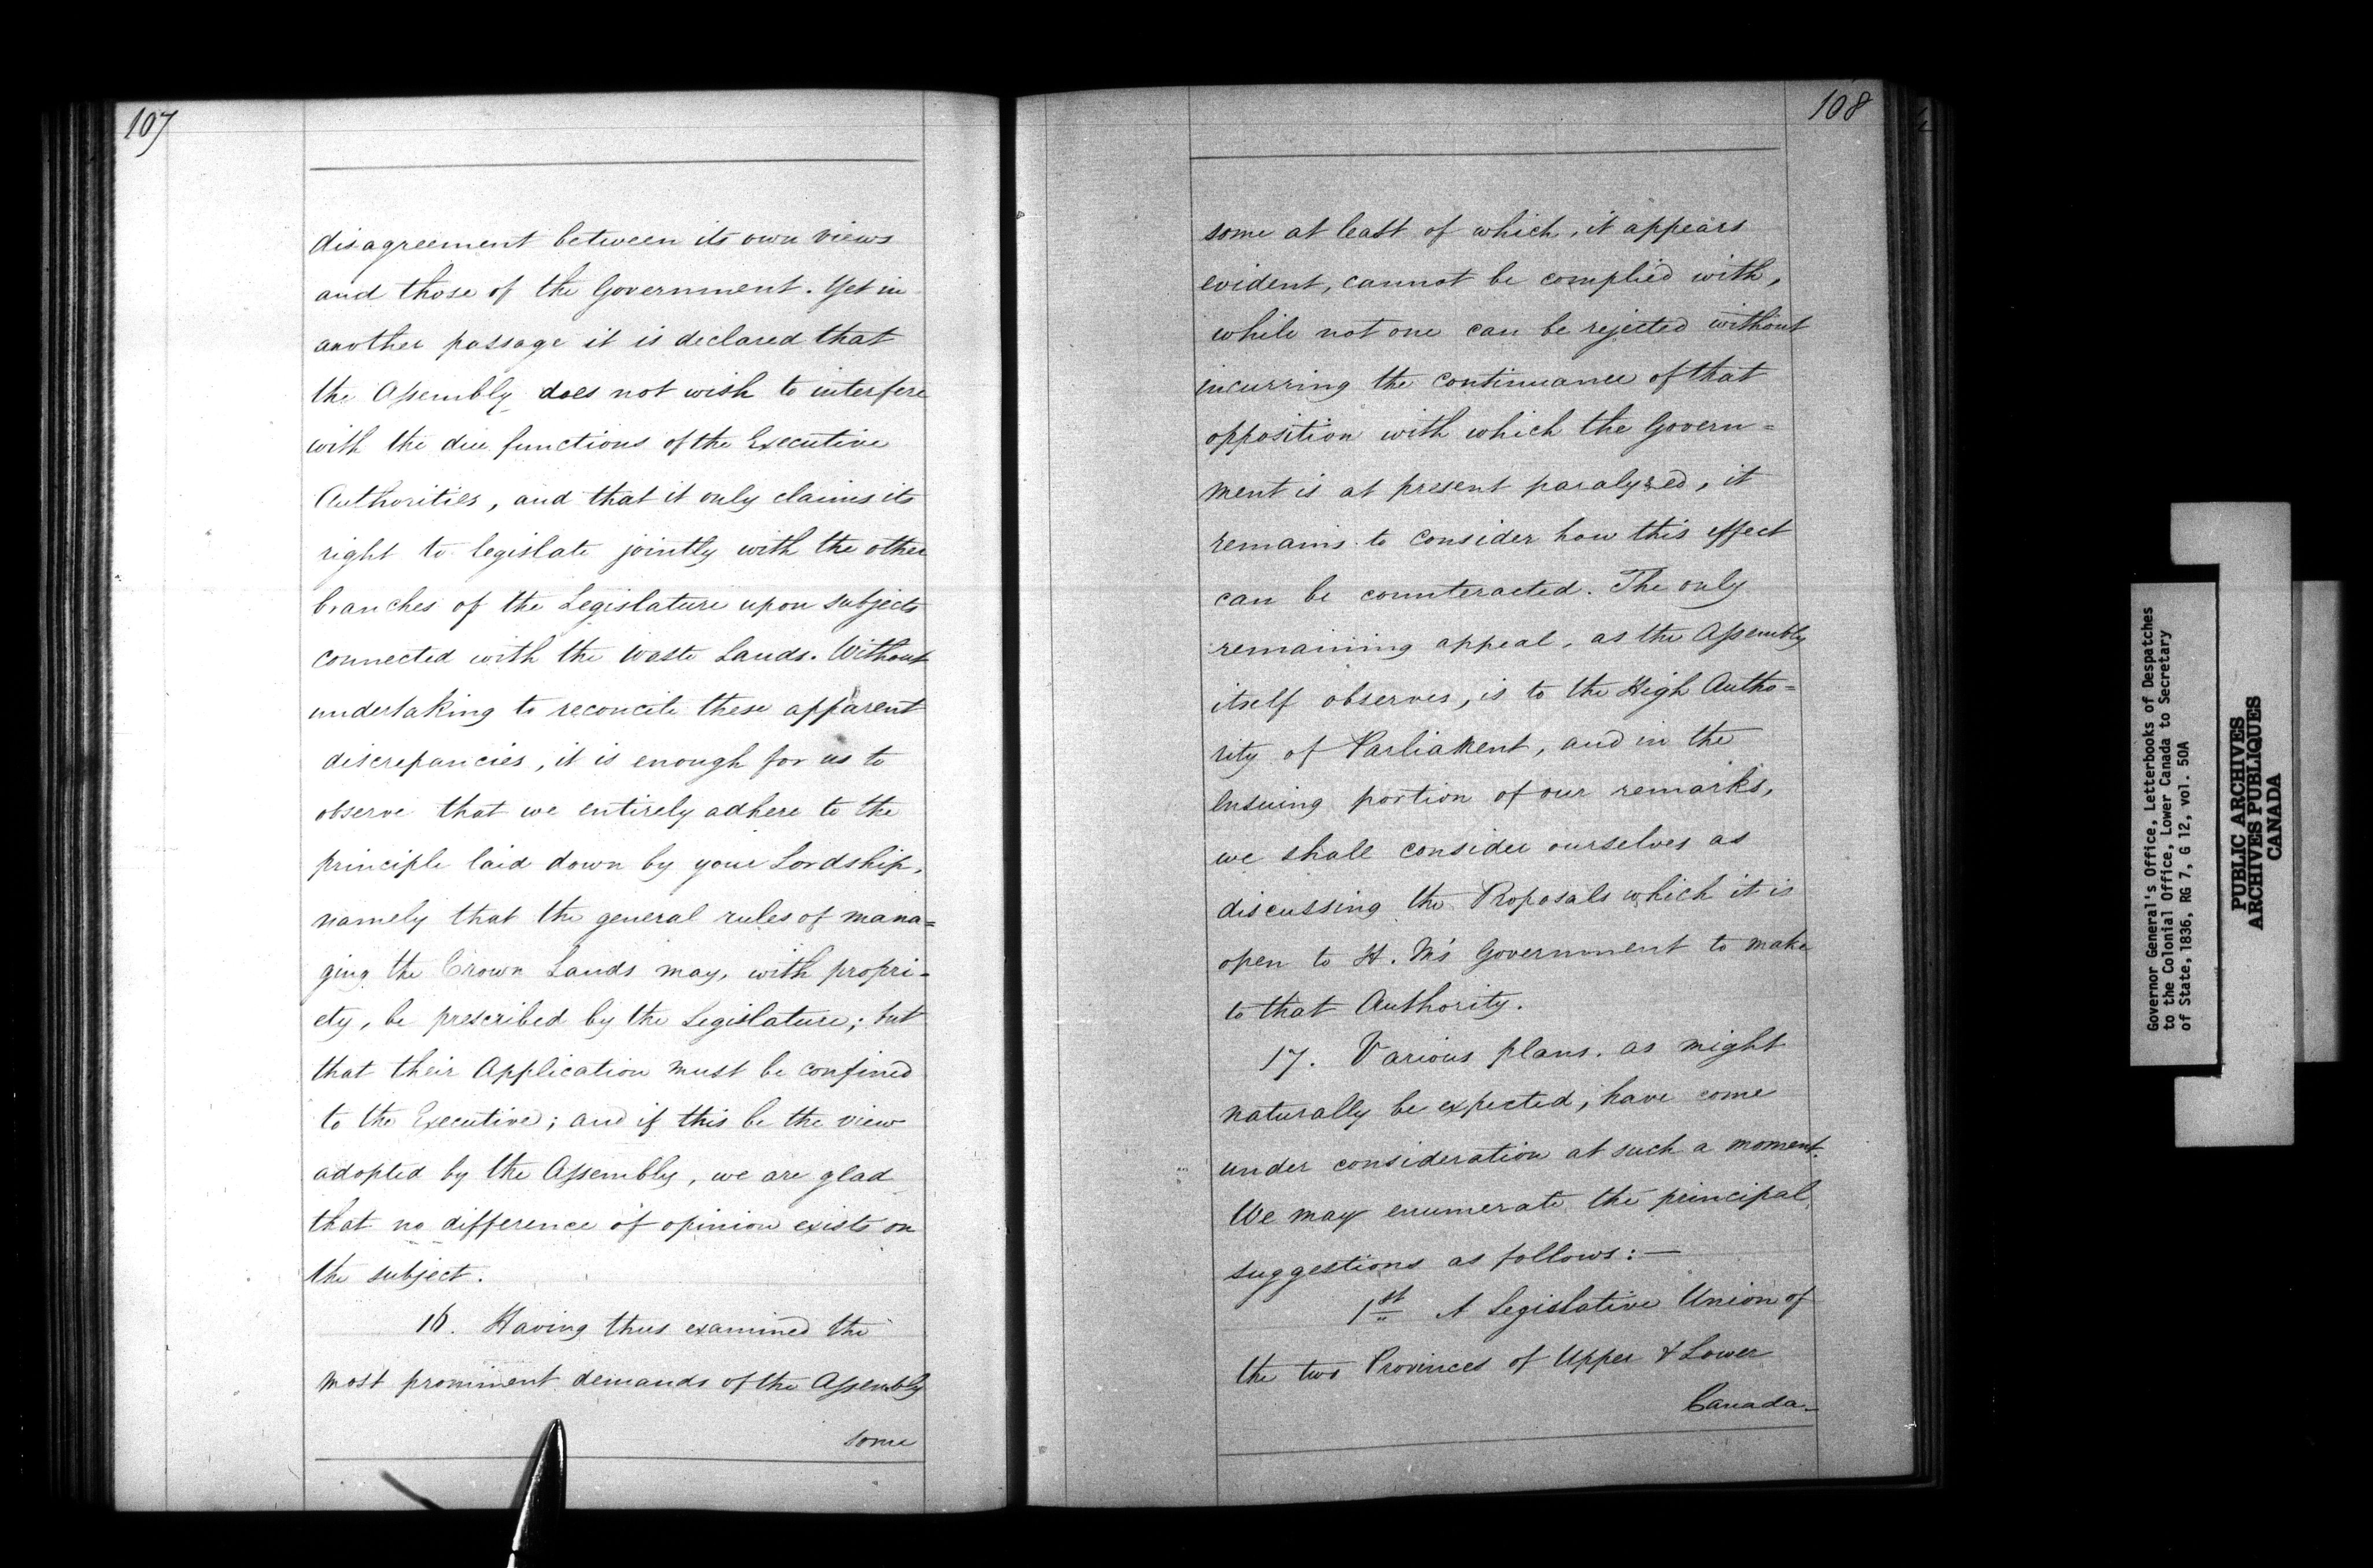 107
disagreement between its own views
and those of the Government. Yet in
another passage it is declared that
the Assembly does not wish to interfere
with the due functions of the Executive
Authorities, and that it only claims its
right to legislate jointly with the other
branches of the Legislature upon subjects
connected with the Waste Lands. Without
undertaking to reconcile these apparent
discrepancies, it is enough for us to
observe that we entirely adhere to the
principle laid down by your Lordship,
namely that the general rules of mana=
ging the Crown Lands may, with propri-
ety, be prescribed by the Legislature; but
that their Application must be confined
to the Executive; and if this be the view
adopted by the Assembly, we are glad
that no difference of opinion exists on
the subject.
16. Having thus examined the
most prominent demands of the Assembly
some
108
some at least of which, it appears
evident, cannot be complied with,
while not one can be rejected without
incurring the continuance of that
opposition with which the Govern=
ment is at present paralyzed, it
remains to consider how this effect
can be counteracted. The only
remaining appeal, as the Assembly
itself observes, is to the High Autho=
rity of Parliament, and in the
ensuing portion of our remarks,
we shall consider ourselves as
discussing the Proposals which it is
open to H. M's Government to make
to that Authority.
17. Various plans, as might
naturally be expected, have come
under consideration at such a moment.
We may enumerate the principal
suggestions as follows: —
1st A Legislative Union of
the two Provinces of Upper & Lower
Canada-
Governor General's Office, Letterbooks of Despatches
to the Colonial Office, Lower Canada to Secretary
of State, 1836, RG 7, G 12, vol. 50A
PUBLIC ARCHIVES
ARCHIVES PUBLIQUES
CANADA